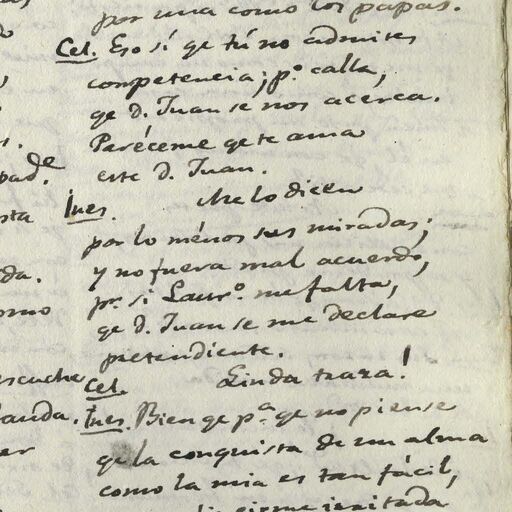 por una como los papas.
Cel. Eso sí qe tú no admites
competencia; po. calla,
qe D. Juan se nos acerca.
Paréceme qe te ama
este D. Juan.
Ines. Me lo dicen
por lo ménos sus miradas;
y no fuera mal acuerdo,
pr. si Lauro. me falta,
qe D. Juan se me declare
pretendiente.
Cel. Linda traza!
Ines. Bien qe pa. qe no piense
qe la conquista de un alma
como la mia es tan fácil,
irritada
de
pad.
sta
da.
omo
escuche
landa.
er